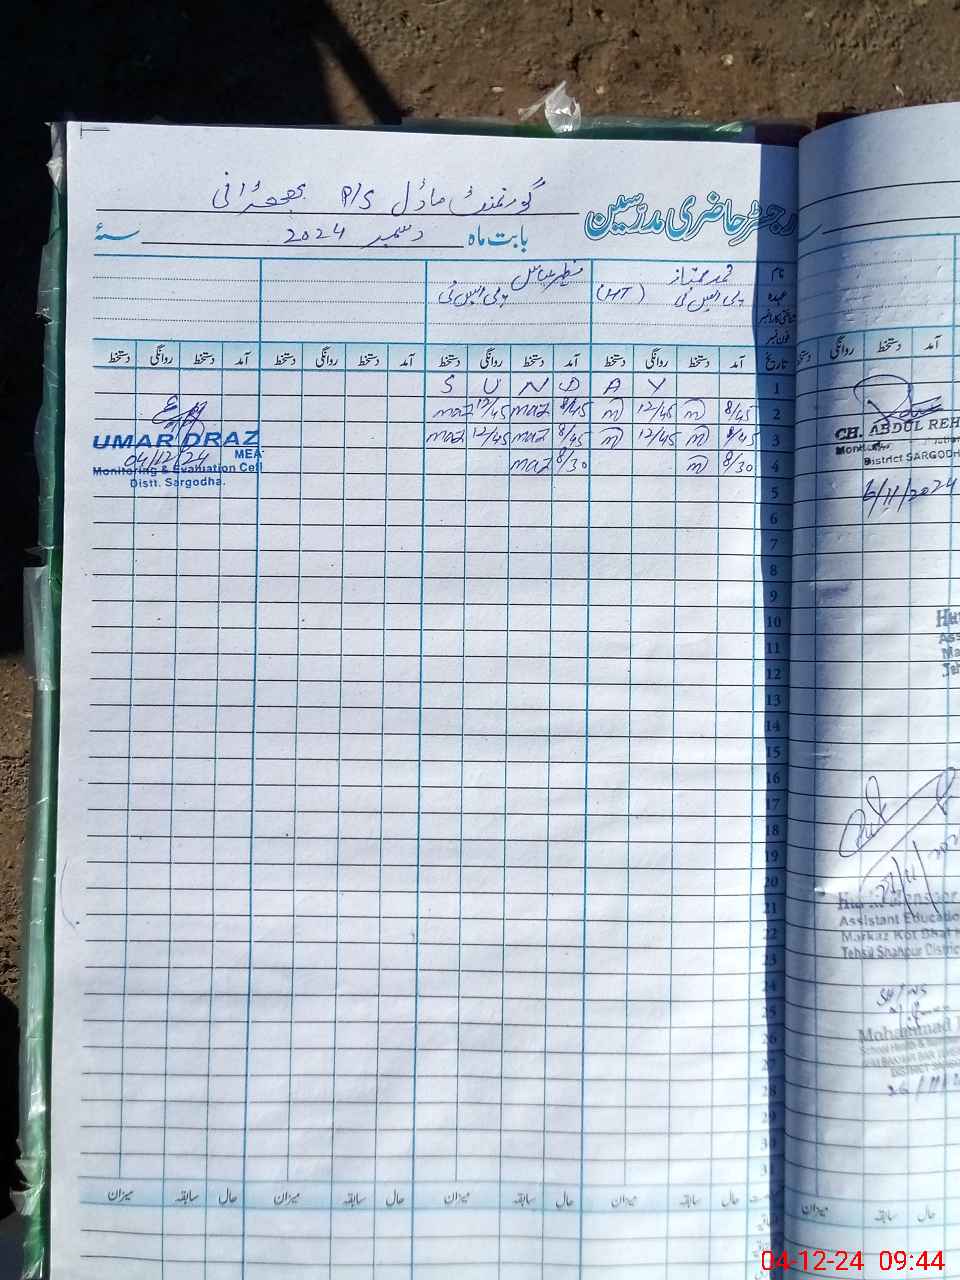 رجسٹر حاضری مدرسین
گورنمنٹ ماڈل P/S
بابت ماہ دسمبر 2024 سنہ
نام
عہدہ (HT) پی ایس ٹی پی ایس ٹی
فون نمبر
تاریخ آمد دستخط روانگی دستخط آمد دستخط روانگی دستخط آمد دستخط روانگی دستخط آمد دستخط روانگی دستخط
1 S U N D A Y
2 8/45 m 12/45 m 8/45 maz 12/45 maz
3 8/45 m 12/45 m 8/45 maz 12/45 maz
4 8/30 m 8/30 maz
5
6
7
8
9
10
11
12
13
14
15
16
17
18
19
20
21
22
23
24
25
26
27
28
29
30
31
حال سابقہ میزان حال سابقہ میزان حال سابقہ میزان حال سابقہ میزان
UMAR DRAZ
04/12/24 MEA
Monitoring & Evaluation Cell
Distt. Sargodha.
آمد دستخط روانگی دستخط
CH. ABDUL REH
District SARGODH
6/11/2024
Assistant Educatio
Markaz Kot Bhai
Tehsil Shahpur District
Mohammad
حال سابقہ میزان
04-12-24 09:44